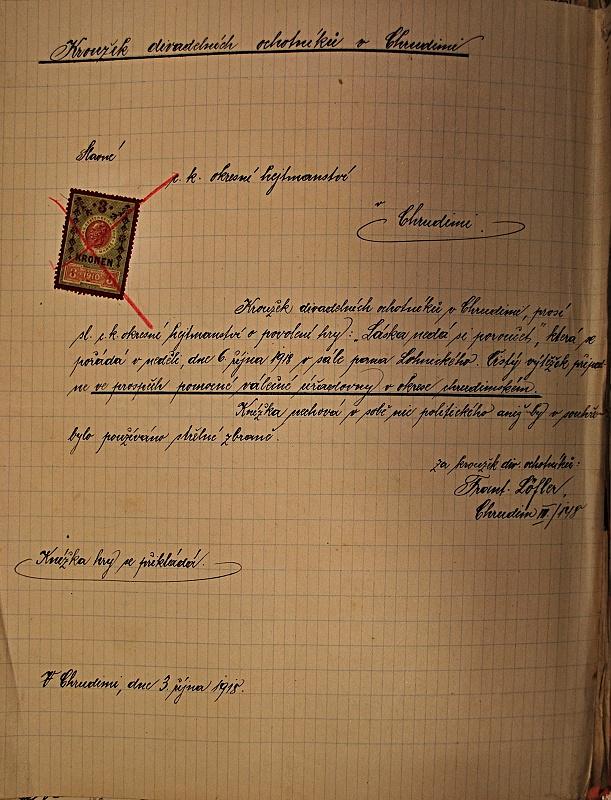 Kroužek divadelních ochotníků v Chrudimi
Slavné
c. k. okresní hejtmanství
v Chrudimi.
3
KRONEN
3 1910 3
Kroužek divadelních ochotníků v Chrudimi, prosí
sl. c. k. okresní hejtmanství o povolení hry: „Láska nedá se poroučet", která se
pořádá v neděli, dne 6. října 1918 v sále pana Čistý výtěžek připad-
ne ve prospěch pomocné válečné úřadovny v okrese chrudimském.
Knížka nechová v sobě nic politického aneb by v
bylo používáno střelné zbraně.
za kroužek div. ochotníků:
Frant. Löfler,
Chrudim III/
Knížka hry se přikládá.
V Chrudimi, dne 3. října 1918.